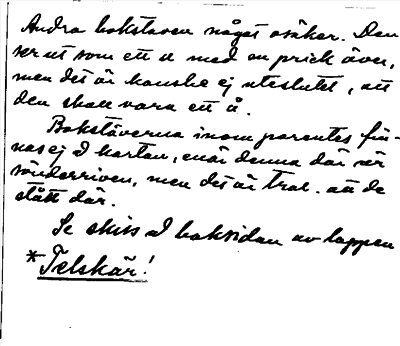 Andra bokstaven något osäker. Den
ser ut som ett u med en prick över,
men det är kanske ej uteslutet, att
den skall vara ett å.
Bokstäverna inom parentes fin-
nas ej å kartan, enär denna där är
sönderriven, men det är trol. att de
stått där.
Se skiss å baksidan av lappen
*Telskär!